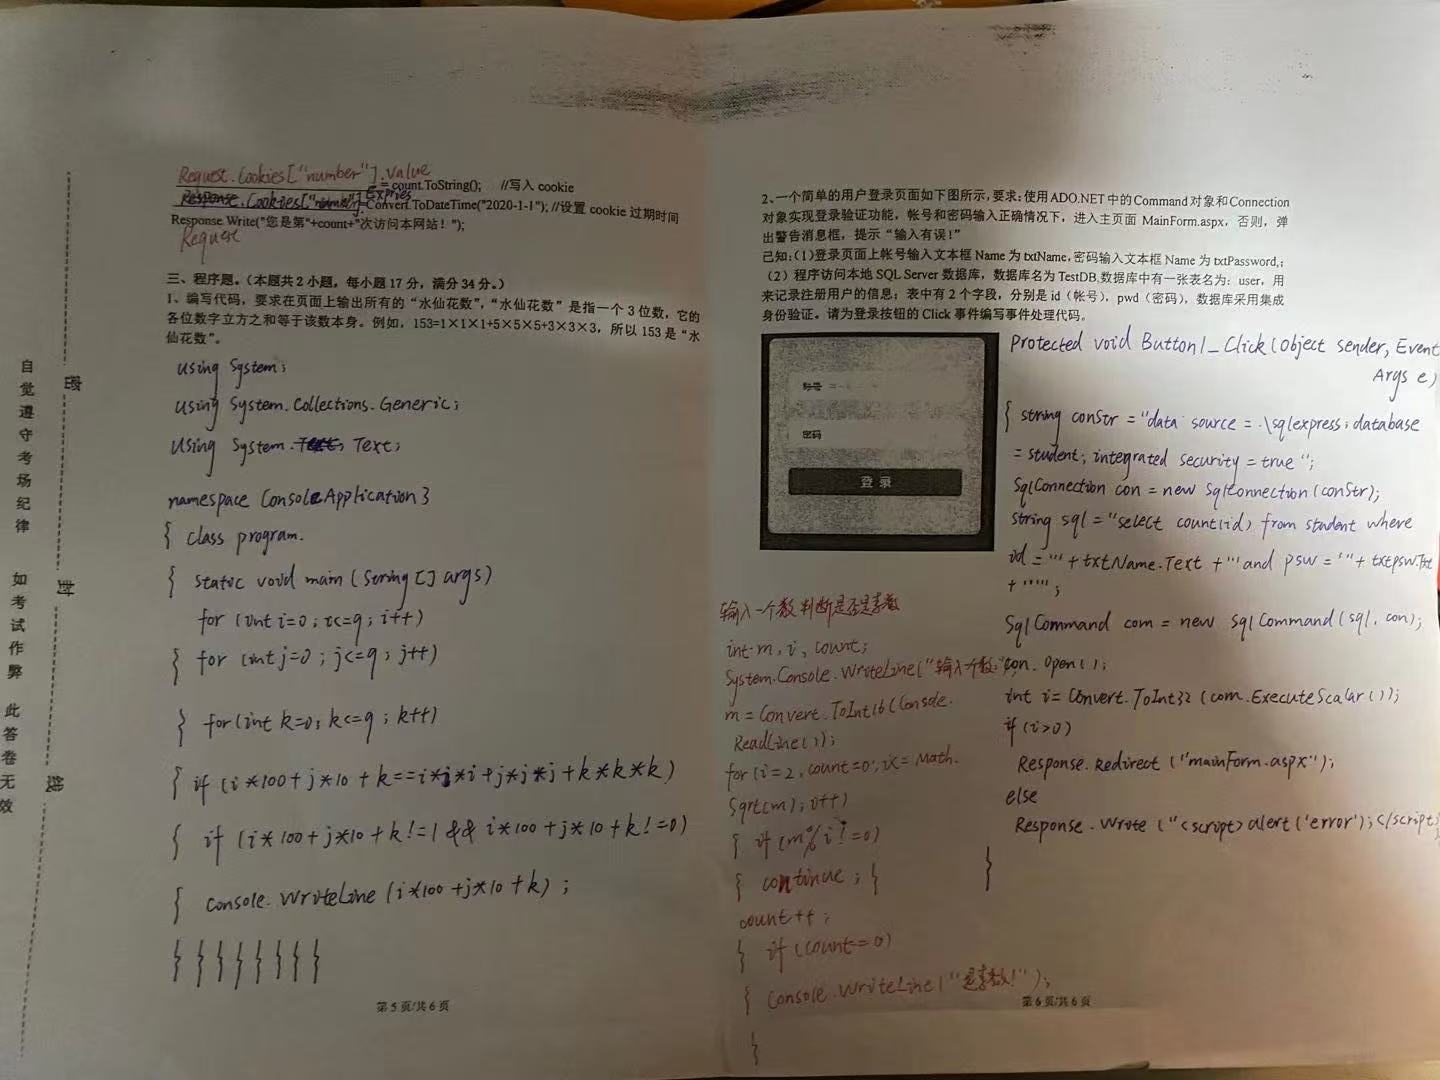 自觉遵守考场纪律 如考试作弊 此答卷无效
密
封
线
Request.Cookies["number"].value
= count.ToString(); //写入 cookie
Response.Cookies["number"].Expries
=Convert.ToDateTime("2020-1-1"); //设置 cookie 过期时间
Response.Write("您是第"+count+"次访问本网站！");
Request
三、程序题。（本题共 2 小题，每小题 17 分，满分 34 分。）
1、编写代码，要求在页面上输出所有的“水仙花数”，“水仙花数”是指一个 3 位数，它的
各位数字立方之和等于该数本身。例如，153=1×1×1+5×5×5+3×3×3，所以 153 是“水
仙花数”。
using System;
using System.Collections.Generic;
using System. Text;
namespace ConsoleApplication3
{ class program.
{ static void main (string [] args)
for (int i=0; i<=9; i++)
{ for (int j=0; j<=9; j++)
} for(int k=0; k<=9; k++)
{ if (i*100+j*10+k==i*j*i+j*j*j+k*k*k)
{ if (i*100+j*10+k!=1 && i*100+j*10+k!=0)
{ console.writeLine (i*100+j*10+k);
} } } } } } } }
第 5 页/共 6 页
2、一个简单的用户登录页面如下图所示，要求：使用 ADO.NET 中的 Command 对象和 Connection
对象实现登录验证功能，帐号和密码输入正确情况下，进入主页面 MainForm.aspx，否则，弹
出警告消息框，提示“输入有误！”
已知：（1）登录页面上帐号输入文本框 Name 为 txtName,密码输入文本框 Name 为 txtPassword,；
（2）程序访问本地 SQL Server 数据库，数据库名为 TestDB,数据库中有一张表名为：user，用
来记录注册用户的信息；表中有 2 个字段，分别是 id（帐号），pwd（密码），数据库采用集成
身份验证。请为登录按钮的 Click 事件编写事件处理代码。
帐号
密码
登录
protected void Button1_Click(Object sender, Event
Args e)
{ string conStr = "data source = .\sqlexpress; database
= student; integrated security = true";
SqlConnection con = new SqlConnection(conStr);
string sql = "select count(id) from student where
id = '" + txtName.Text + "'and psw = '" + txtpsw.Txt
+ "'";
SqlCommand com = new SqlCommand(sql, con);
con. Open();
int i = Convert.ToInt32 (com.ExecuteScalar());
if (i>0)
Response.Redirect ("mainForm.aspx");
else
Response.Wrote ("<script>alert('error');</script
}
输入一个数判断是否是素数
int m, i, count;
System.Console.WriteLine("输入一个数:");
m = Convert.ToInt16(Console.
ReadLine());
for (i=2, count=0; i<=Math.
Sqrt(m); i++)
{ if (m%i!=0)
{ continue; }
count++;
} if (count==0)
{ Console.WriteLine("是素数!");
}
第 6 页/共 6 页